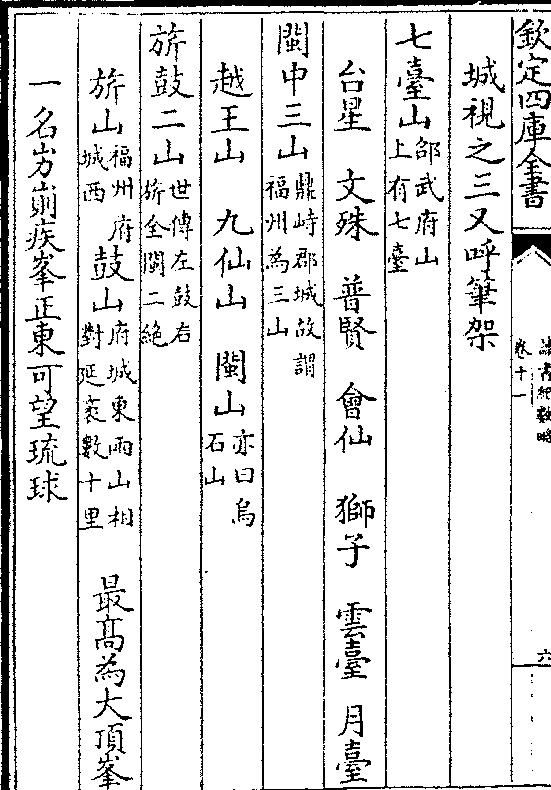 欽定四庫全書
讀書紀數略
卷十一
六
城視之三又呼筆架
七臺山邵武府山上有七臺
台星 文殊 普賢 會仙 獅子 雲臺 月臺
閩中三山鼎峙郡城故謂福州為三山
越王山 九仙山 閩山亦曰烏石山
旂鼓二山世傳左鼓右旂全閩二絶
旂山福州府城西 鼓山府城東兩山相對延袤數十里 最髙為大頂峯
一名屴崱疾峯正東可望琉球